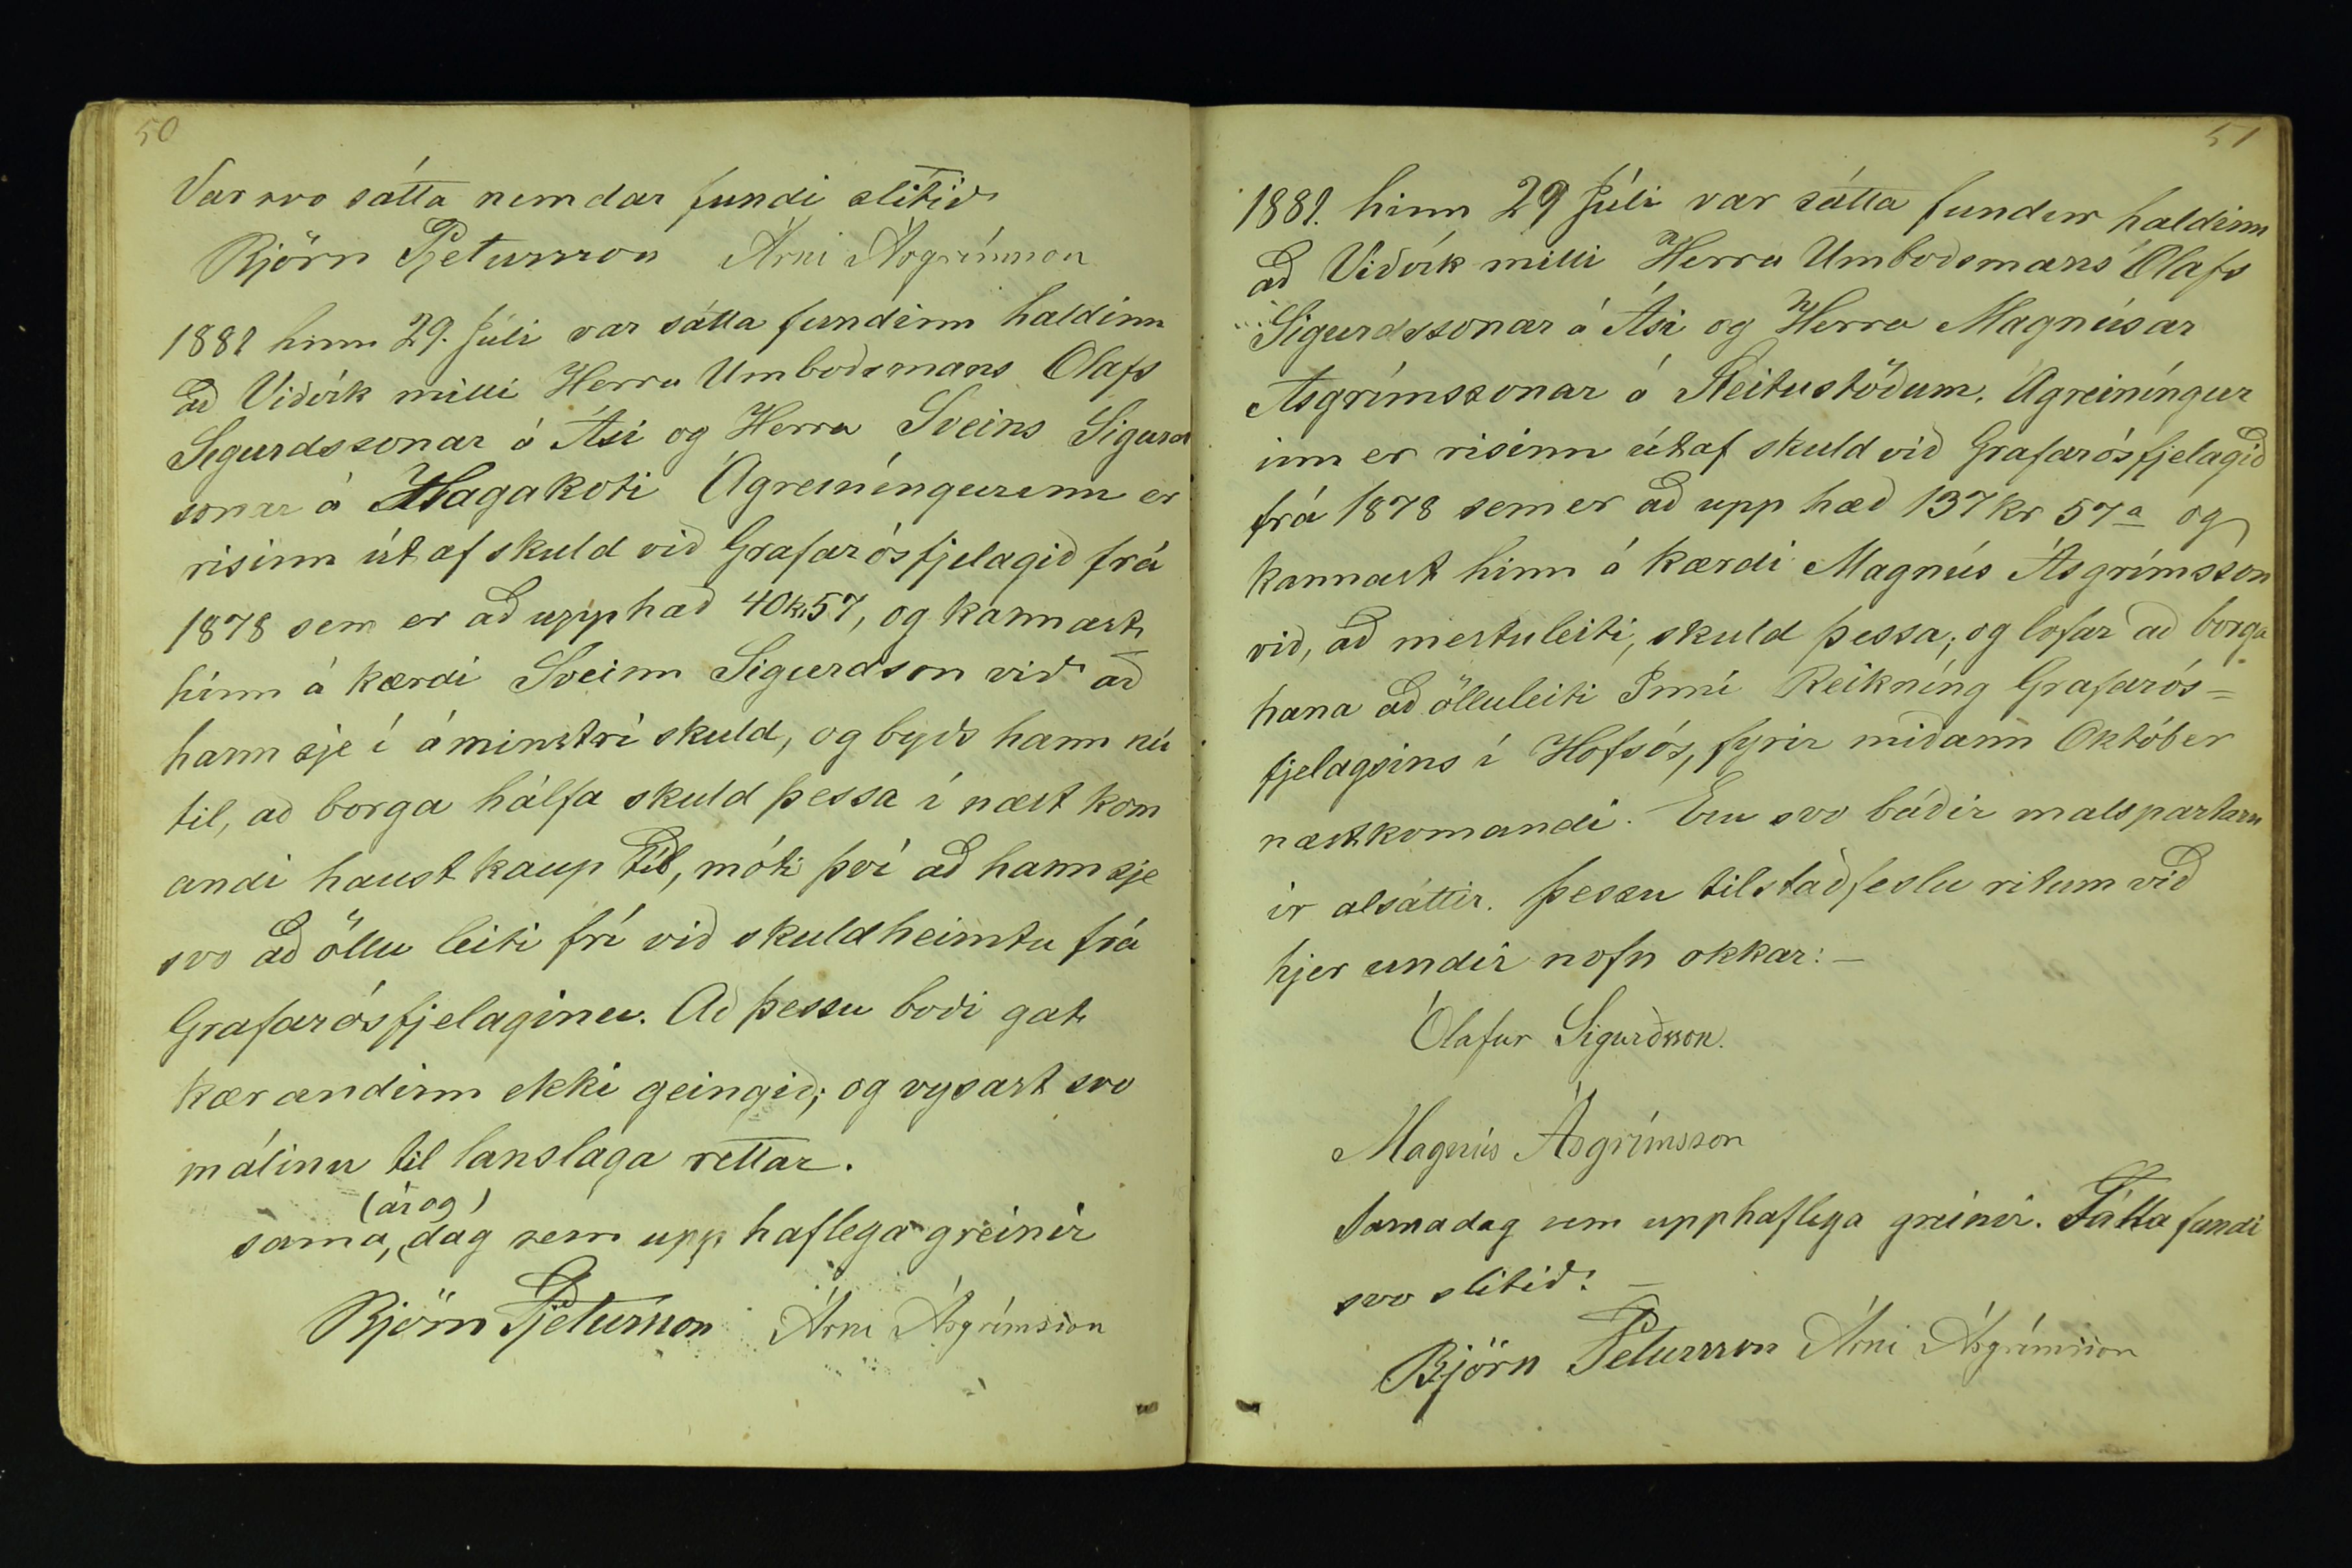 50
Var svo sátta nemdar fundi slitið
Björn Pjetursson Árni Ásgrímsson
1881 hinn 29. Júli var sátta fundinn haldinn
að Viðvík milli Herra Umboðsmans Olafs
Sigurdssonar á Ási og Herra Sveins Sigurd
sonar á Hagakoti Ágreiníngurinn er
risinn út af skuld við Grafarósfjelagið frá
1878 sem er að upphæð 40kr57, og kannast
hinn á kærdi Sveinn Sigurdson við að
hann sje í áminstri skuld, og byðs hann nú
til, að borga hálfa skuld þessa í næst kom
andi haust kaup tíð, móti því að hann sje
svo að öllu leiti frí við skuldheimtu frá
Grafarósfjelaginu. Að þessu boði gat
kærandinn ekki geingið; og vysast svo
málinu til lanslaga rettar.
(ár og)
sama, dag sem upp haflega greinir
Björn Pjetursson Árni Ásgrímsson
51
1881. hinn 29 Júli var sátta fundur haldinn
að Viðvík milli Herra Umboðsmans Olafs
Sigurdssonar á Ási og Herra Magnúsar
Ásgrímssonar á Sleitustöðum. Ágreiníngur
inn er risinn útaf skuld við Grafarósfjelagið
frá 1878 sem er að upp hæð 137 kr 57a og
kannast hinn á kærdi Magnús Ásgrímsson
við, að mestuleiti, skuld þessa; og lofar að borga
hana að ölluleiti Inní Reikníng Grafarós=
fjelagsins í Hofsós, fyrir miðann Október
næstkomandi. Eru svo báðir malspartarn
ir alsáttir. þessu til staðfeslu ritum við
hjer undir nofn okkar: —
Ólafur Sigurðsson.
Magnús Ásgrímsson
Samadag sem upphaflega greinir. Sátta fundi
svo slitið: —
Björn Petursson Árni Ásgrímsson